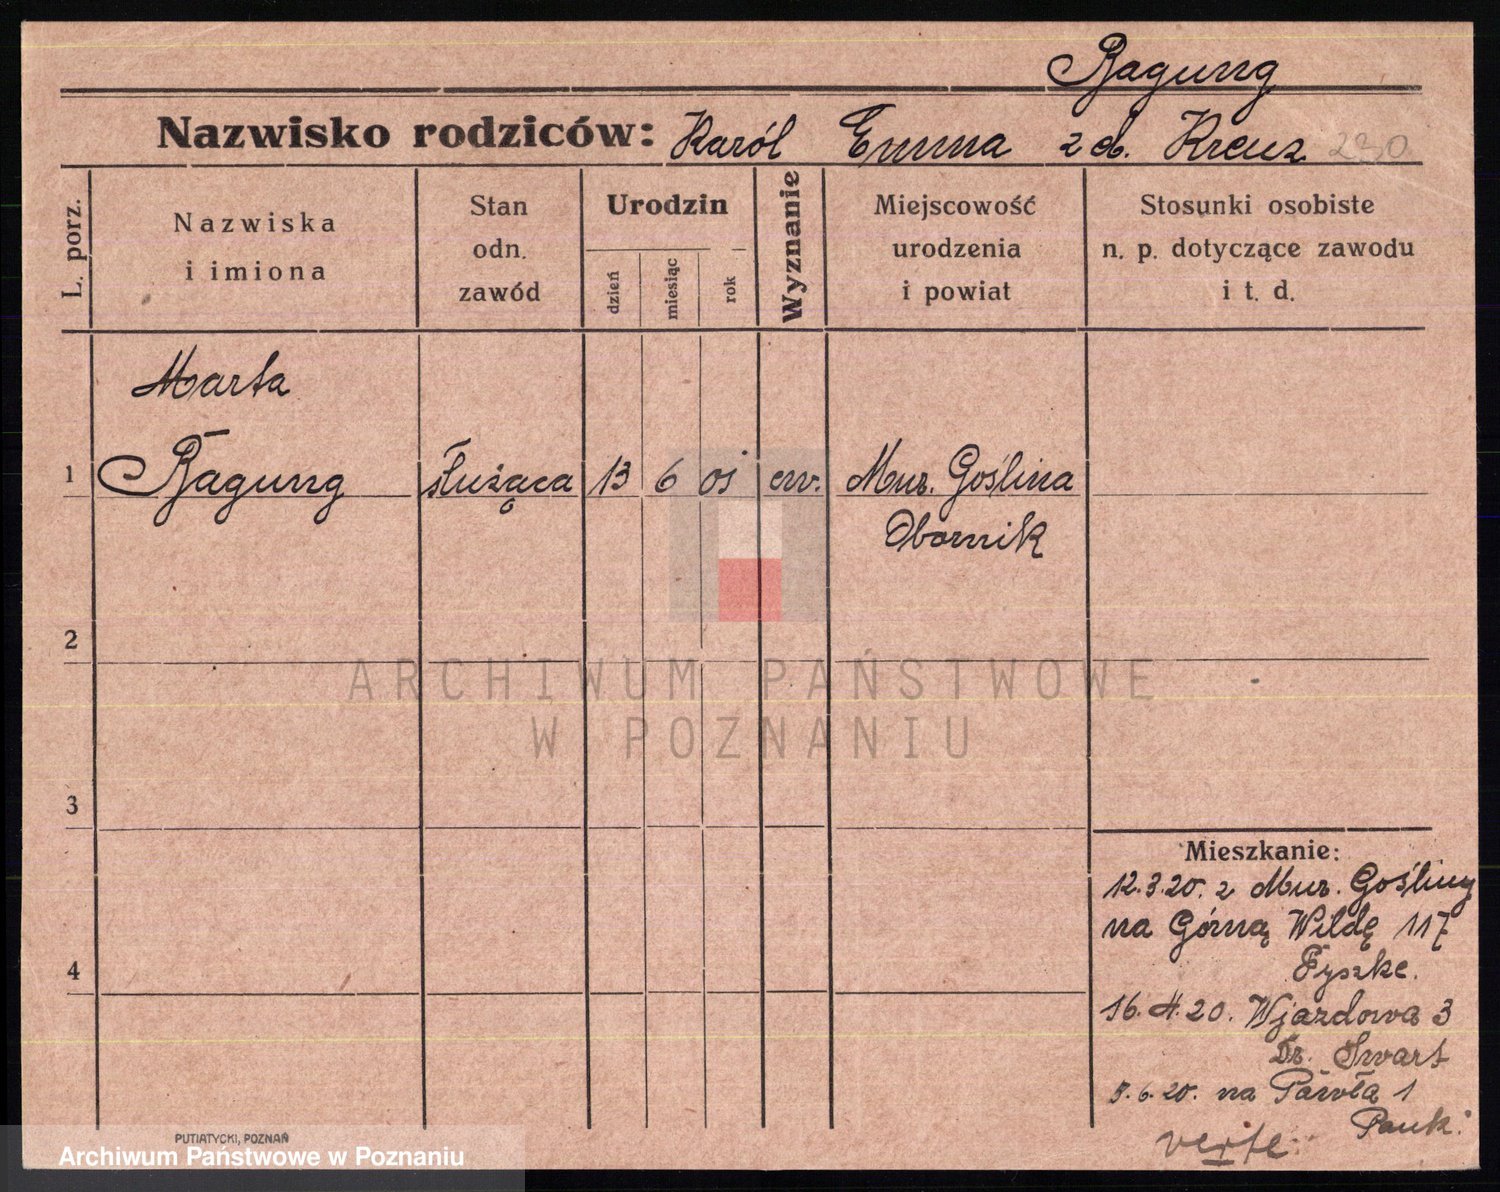 Ragung
Nazwisko rodziców: Karól Emma z d. Kreuz 230
L. porz.
Nazwiska
i imiona
Stan
odn.
zawód
Urodzin
dzień
miesiąc
rok
Wyznanie
Miejscowość
urodzenia
i powiat
Stosunki osobiste
n. p. dotyczące zawodu
i t. d.
Marta
1 Ragung służąca 13 6 05 ew. Mur. Goślina
Obornik
2
ARCHIWUM PAŃSTWOWE
W POZNANIU
3
Mieszkanie:
12.3.20. z Mur. Gośliny
na Górną Wildę 117
Fyszke.
4
16.4.20. Wjazdowa 3
Dr. Swart
6.20. na Pawła 1
Pauk.
verte.
PUTIATYCKI, POZNAŃ
Archiwum Państwowe w Poznaniu